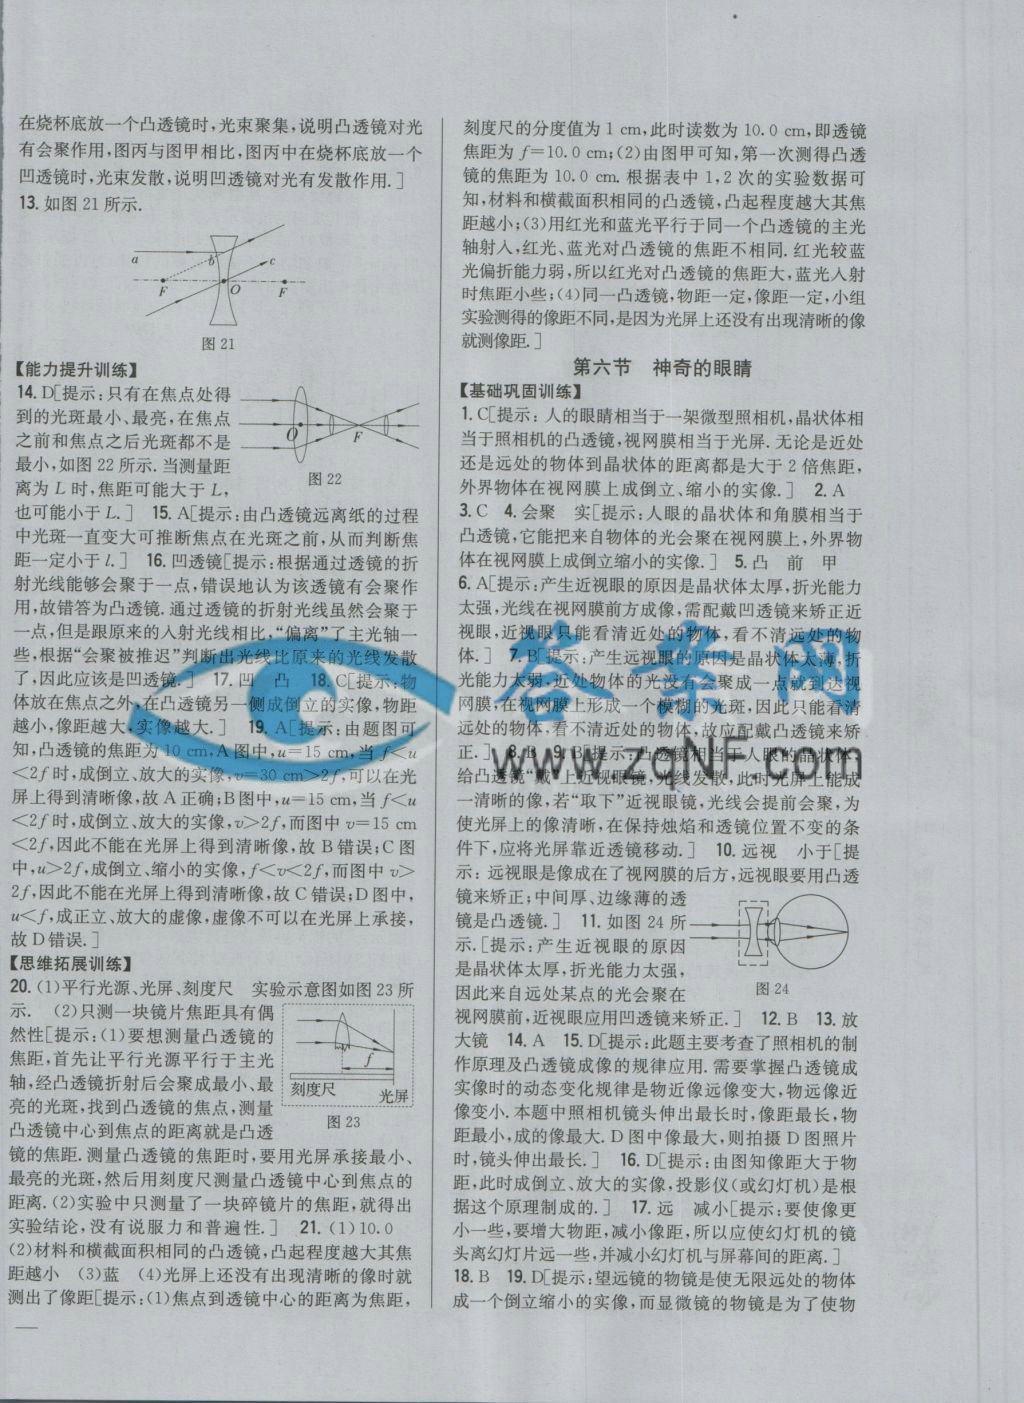 在烧杯底放一个凸透镜时,光束聚集,说明凸透镜对光
有会聚作用,图丙与图甲相比,图丙中在烧杯底放一个
凹透镜时,光束发散,说明凹透镜对光有发散作用.]
13. 如图 21 所示.
a
b
c
F
O
F
图 21
【能力提升训练】
14. D[提示:只有在焦点处得
到的光斑最小、最亮,在焦点
之前和焦点之后光斑都不是
最小,如图 22 所示. 当测量距
离为 L 时,焦距可能大于 L,
O
F
图 22
也可能小于 L.] 15. A[提示:由凸透镜远离纸的过程
中光斑一直变大可推断焦点在光斑之前,从而判断焦
距一定小于 l.] 16. 凹透镜[提示:根据通过透镜的折
射光线能够会聚于一点,错误地认为该透镜有会聚作
用,故错答为凸透镜. 通过透镜的折射光线虽然会聚于
一点,但是跟原来的入射光线相比,“偏离”了主光轴一
些,根据“会聚被推迟”判断出光线比原来的光线发散
了,因此应该是凹透镜.] 17. 凹 凸 18. C[提示:物
体放在焦点之外,在凸透镜另一侧成倒立的实像,物距
越小,像距越大,实像越大.] 19. A[提示:由题图可
知,凸透镜的焦距为 10 cm,A 图中,u=15 cm,当 f<u
<2f 时,成倒立、放大的实像,v=30 cm>2f,可以在光
屏上得到清晰像,故 A 正确;B 图中,u=15 cm,当 f<u
<2f 时,成倒立、放大的实像,v>2f,而图中 v=15 cm
<2f,因此不能在光屏上得到清晰像,故 B 错误;C 图
中,u>2f,成倒立、缩小的实像,f<v<2f,而图中 v>
2f,因此不能在光屏上得到清晰像,故 C 错误;D 图中,
u<f,成正立、放大的虚像,虚像不可以在光屏上承接,
故 D 错误.]
【思维拓展训练】
20. (1)平行光源、光屏、刻度尺 实验示意图如图 23 所
示. (2)只测一块镜片焦距具有偶
然性[提示:(1)要想测量凸透镜的
焦距,首先让平行光源平行于主光
轴,经凸透镜折射后会聚成最小、最
亮的光斑,找到凸透镜的焦点,测量
凸透镜中心到焦点的距离就是凸透
f
刻度尺
光屏
图 23
镜的焦距. 测量凸透镜的焦距时,要用光屏承接最小、
最亮的光斑,然后用刻度尺测量凸透镜中心到焦点的
距离. (2)实验中只测量了一块碎镜片的焦距,就得出
实验结论,没有说服力和普遍性.] 21. (1)10.0
(2)材料和横截面积相同的凸透镜,凸起程度越大其焦
距越小 (3)蓝 (4)光屏上还没有出现清晰的像时就
测出了像距[提示:(1)焦点到透镜中心的距离为焦距,
刻度尺的分度值为 1 cm,此时读数为 10.0 cm,即透镜
焦距为 f=10.0 cm;(2)由图甲可知,第一次测得凸透
镜的焦距为 10.0 cm. 根据表中 1,2 次的实验数据可
知,材料和横截面积相同的凸透镜,凸起程度越大其焦
距越小;(3)用红光和蓝光平行于同一个凸透镜的主光
轴射入,红光、蓝光对凸透镜的焦距不相同. 红光较蓝
光偏折能力弱,所以红光对凸透镜的焦距大,蓝光入射
时焦距小些;(4)同一凸透镜,物距一定,像距一定,小组
实验测得的像距不同,是因为光屏上还没有出现清晰的像
就测像距.]
第六节 神奇的眼睛
【基础巩固训练】
1. C[提示: 人的眼睛相当于一架微型照相机,晶状体相
当于照相机的凸透镜,视网膜相当于光屏. 无论是近处
还是远处的物体到晶状体的距离都是大于 2 倍焦距,
外界物体在视网膜上成倒立、缩小的实像.] 2. A
3. C 4. 会聚 实[提示:人眼的晶状体和角膜相当于
凸透镜,它能把来自物体的光会聚在视网膜上,外界物
体在视网膜上成倒立缩小的实像.] 5. 凸 前 甲
6. A[提示:产生近视眼的原因是晶状体太厚,折光能力
太强,光线在视网膜前方成像,需配戴凹透镜来矫正近
视眼,近视眼只能看清近处的物体,看不清远处的物
体.] 7. B[提示:产生远视眼的原因是晶状体太薄,折
光能力太弱,近处物体的光没有会聚成一点就到达视
网膜,在视网膜上形成一个模糊的光斑,因此只能看清
远处的物体,看不清近处的物体,故应配戴凸透镜来矫
正.] 8. B 9. B[提示:凸透镜相当于人眼的晶状体,
给凸透镜“戴”上近视眼镜,光线发散,此时光屏上能成
一清晰的像,若“取下”近视眼镜,光线会提前会聚,为
使光屏上的像清晰,在保持烛焰和透镜位置不变的条
件下,应将光屏靠近透镜移动.] 10. 远视 小于[提
示: 远视眼是像成在了视网膜的后方,远视眼要用凸透
镜来矫正;中间厚、边缘薄的透
镜是凸透镜.] 11. 如图 24 所
示.[提示:产生近视眼的原因
是晶状体太厚,折光能力太强,
因此来自远处某点的光会聚在
图 24
视网膜前,近视眼应用凹透镜来矫正.] 12. B 13. 放
大镜 14. A 15. D[提示:此题主要考查了照相机的制
作原理及凸透镜成像的规律应用. 需要掌握凸透镜成
实像时的动态变化规律是物近像远像变大,物远像近
像变小. 本题中照相机镜头伸出最长时,像距最长,物
距最小,成的像最大. D 图中像最大,则拍摄 D 图照片
时,镜头伸出最长.] 16. D[提示:由图知像距大于物
距,此时成倒立、放大的实像,投影仪(或幻灯机)是根
据这个原理制成的.] 17. 远 减小[提示:要使像更
小一些,要增大物距,减小像距,所以应使幻灯机的镜
头离幻灯片远一些,并减小幻灯机与屏幕间的距离.]
18. B 19. D[提示:望远镜的物镜是使无限远处的物体
成一个倒立缩小的实像,而显微镜的物镜是为了使物
答案网
www.zqNF.com